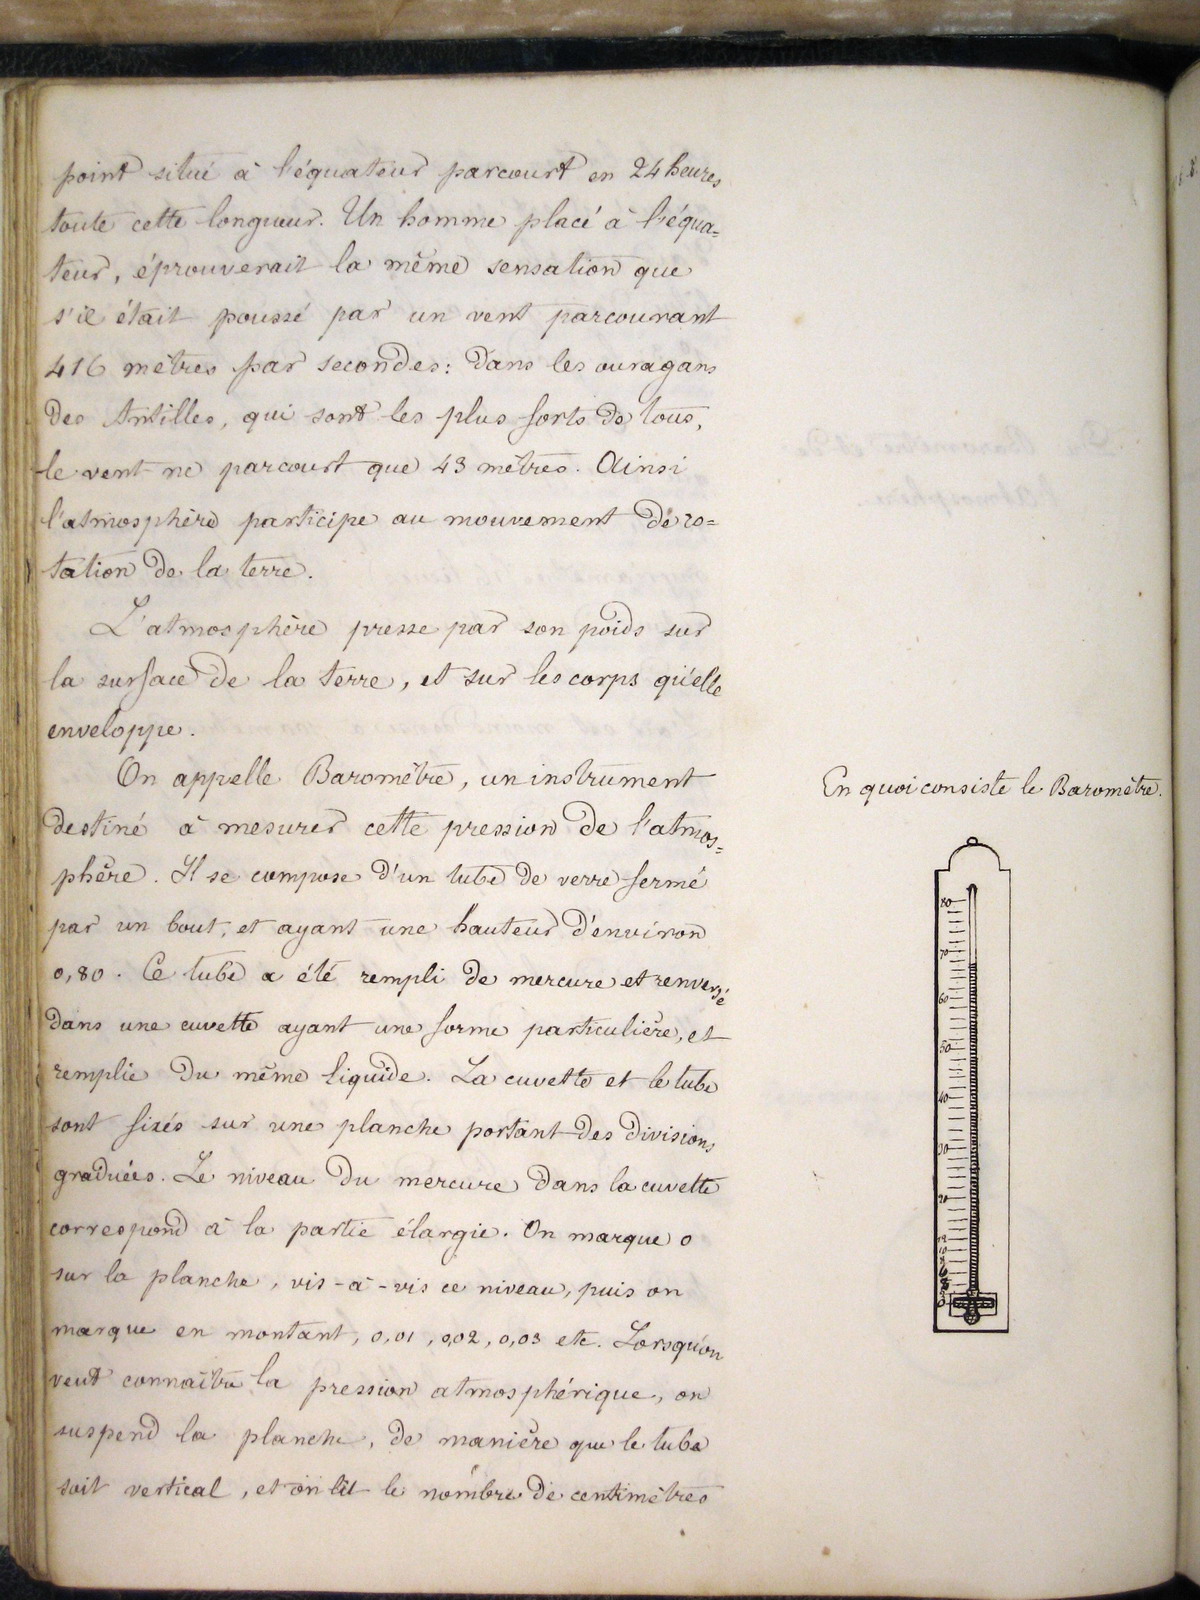 point situé à l'équateur parcourt en 24 heures
toute cette longueur. Un homme placé à l'équa=
teur, éprouverait la même sensation que
s'il était poussé par un vent parcourant
416 mètres par secondes: dans les ouragans
des Antilles, qui sont les plus forts de tous,
le vent ne parcourt que 43 mètres. Ainsi
l'atmosphère participe au mouvement de ro=
tation de la terre.
L'atmosphère presse par son poids sur
la surface de la terre, et sur les corps qu'elle
enveloppe.
On appelle Baromètre, un instrument
destiné à mesurer cette pression de l'atmos=
phère. Il se compose d'un tube de verre fermé
par un bout, et ayant une hauteur d'environ
0,80. Ce tube a été rempli de mercure et renversé
dans une cuvette ayant une forme particulière, et
remplie du même liquide. La cuvette et le tube
sont fixés sur une planche portant des divisions
graduées. Le niveau du mercure dans la cuvette
correspond à la partie élargie. On marque 0
sur la planche, vis-à-vis ce niveau, puis on
marque en montant, 0,01, 0,02, 0,03 etc. Lorsqu'on
veut connaître la pression atmosphérique, on
suspend la planche, de manière que le tube
soit vertical, et on lit le nombre de centimètres
En quoi consiste le Baromètre.
80
70
60
50
40
30
20
12
10
8
6